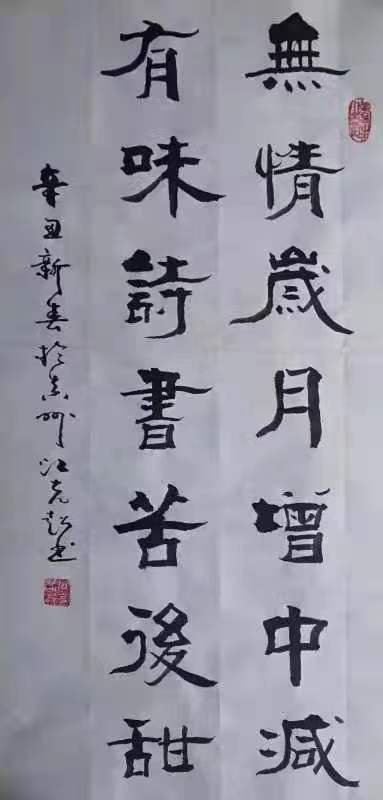 無情歲月增中減
有味詩書苦後甜
辛丑新春於泉州江克彭书